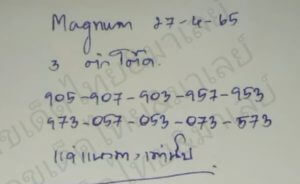 Magnum 27-4-65
3 ตัวโต๊ด
905-907-903-957-953
973-057-053-073-573
แค่แนวทางเท่านั้น